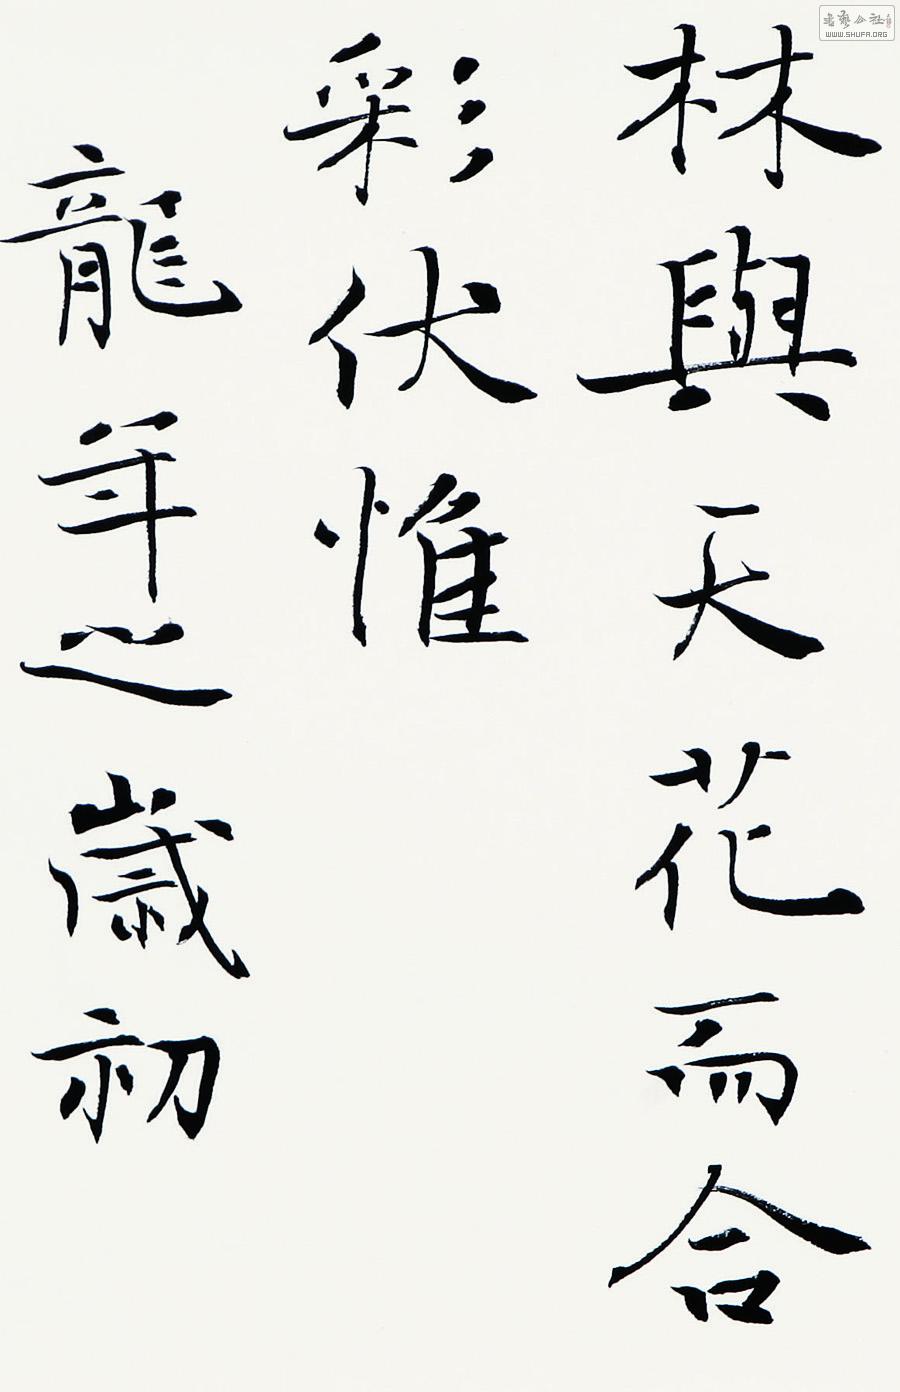 林與天花而合
彩伏惟
龍年之歲初
書藝公社
WWW.SHUFA.ORG